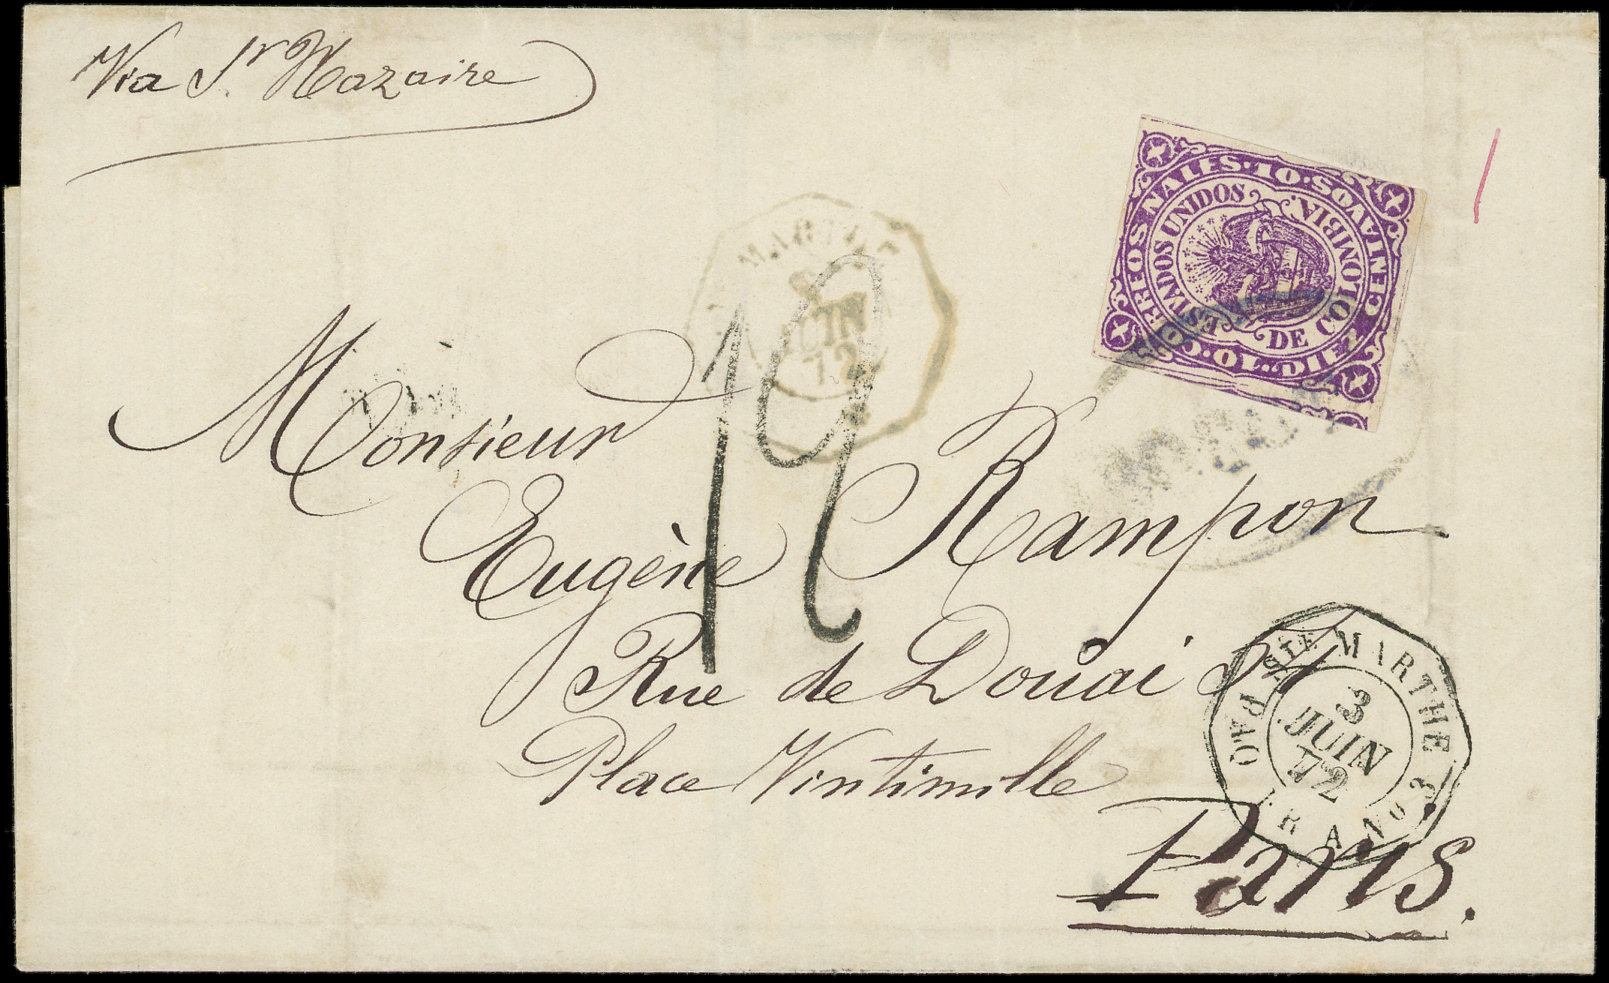 Via St Nazaire
CORREOS NALES. 10. CENTAVOS. DIEZ. 10.
ESTADOS UNIDOS DE COLOMBIA.
JUIN
72
12
Monsieur
Eugène Rampon
Rue de Douai 51
Place Vintimille
Paris.
PAQ STE MARTHE
3
JUIN
72
FR. A No 3